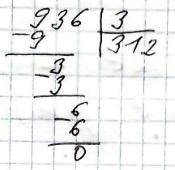 936 | 3
-9 | 312
3
-3
6
-6
0